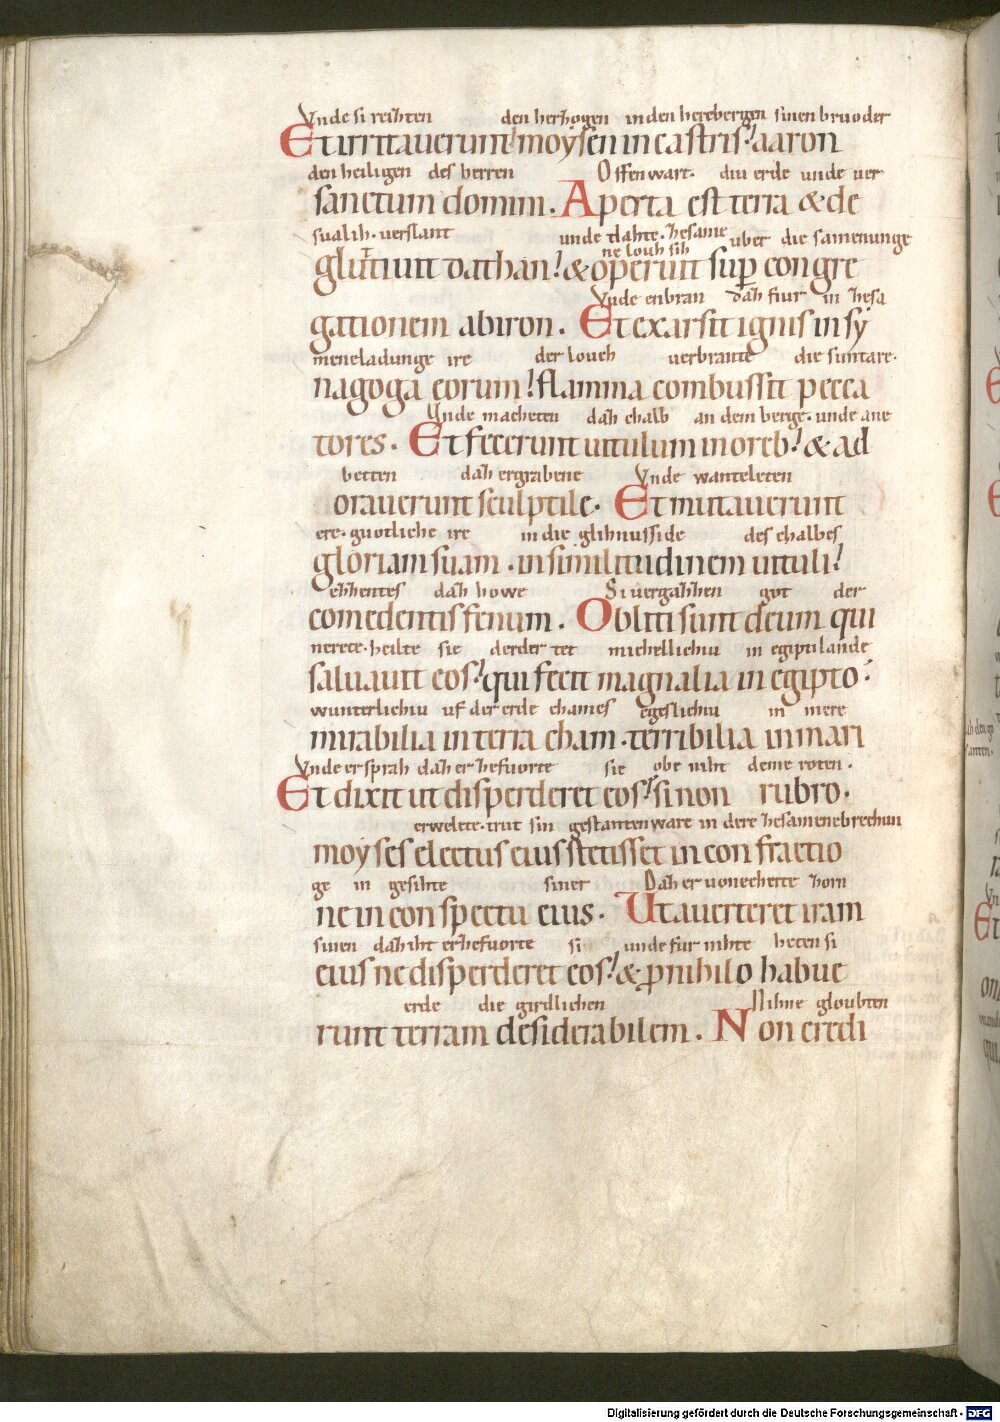 Vnde si reihten den herzogen in den herebergen sinen bruoder
Et irritauerunt moysen in castris! aaron
den heiligen des herren Offen wart. diu erde unde uer
sanctum domini. Aperta est terra & de
sualih. uerslant unde dahte. zesame uber die samenunge
ne louh sih
glutiuit dathan! & operuit sup congre
Vnde enbran dah fiur in zesa
gationem abiron. Et exarsit ignis in sy
meneladunge ire der louch uerbrante die suntare.
nagoga eorum! flamma combussit pecca
Vnde macheten dah chalb an dem berge. unde ane
tores. Et fecerunt uitulum in oreb! & ad
betten dah ergrabene Vnde wanteleten
orauerunt sculptile. Et mutauerunt
ere. guotliche ire in die glihnusside des chalbes
gloriam suam. in similitudinem uituli!
ezzentes dah howe Si uergazzen got der
comedentis fenum. Obliti sunt deum qui
nerete. heilte sie der der tet michellichiu in egiptilande
saluauit eos! qui fecit magnalia in egipto!
wunterlichiu uf der erde chames egeslichiu in mere
mirabilia in terra cham. terribilia in mari
Vnde er sprah dah er zefuorte sie obe niht deme roten.
Et dixit ut disperderet eos! si non rubro.
erwelete. trut sin gestanten ware in dere zesamenebrechun
moyses electus eius stetisset in confractio
ge in gesihte siner Dah er uonecherte zorn
ne in conspectu eius. Ut auerteret iram
sinen dah iht er zefuorte si unde fur nihte heten si
eius ne disperderet eos! & p nihilo habue
erde die girdlichen Nihne gloubten
runt terram desiderabilem. Non credi
Digitalisierung gefördert durch die Deutsche Forschungsgemeinschaft - DFG